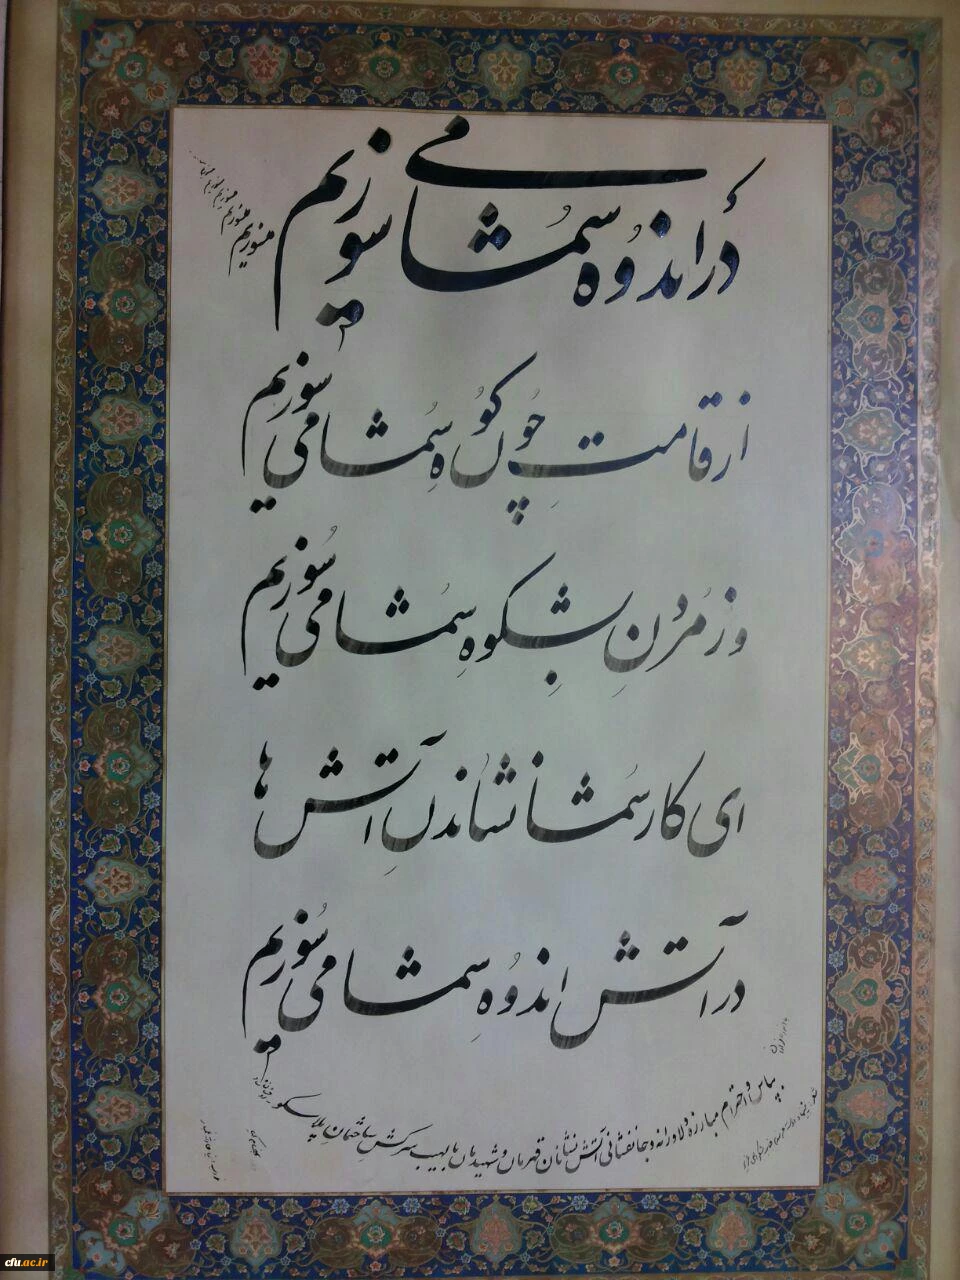 در اندوه شما می سوزیم
می‌سوزیم
از قامتِ چون کوهِ شما می سوزیم
وز مردنِ بِشکوهِ شما می سوزیم
ای کارِ شما نشاندنِ آتش ها
در آتش اندوهِ شما می سوزیم
بپاس و احترام مبارزه دلاورانه و جانفشانی آتش نشانان قهرمان و شهیدمان با لهیب سرکش ساختمان پلاسکو
cfu.ac.ir